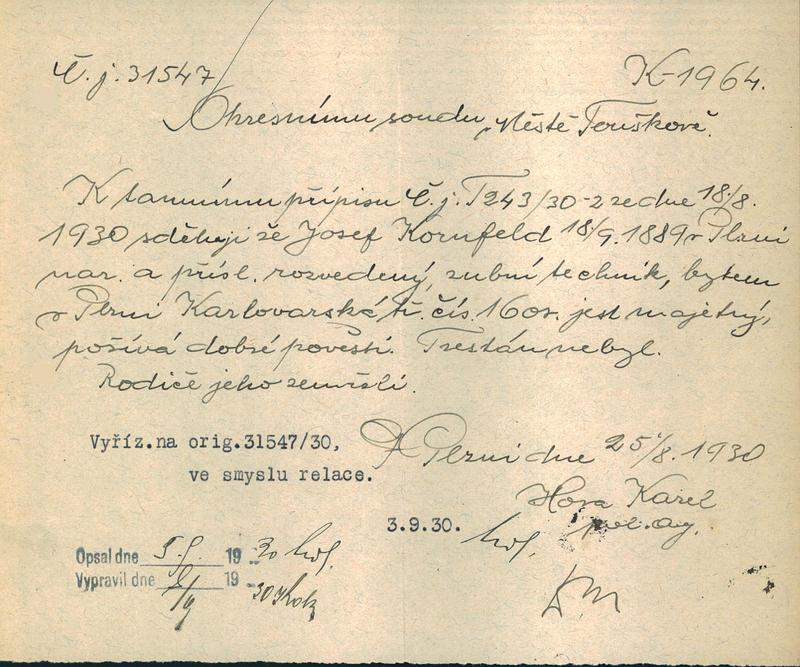 Č.j. 31547
K-1964.
Okresnímu soudu v Městě Touškově.
K tamnímu přípisu Č.j. T 243/30-2 ze dne 18./8.
1930 sděluji že Josef Kornfeld 18/9. 1889 v Plzni
nar. a přísl. rozvedený, zubní technik, bytem
v Plzni Karlovarská tř. čís. 16 jest majetný,
požívá dobré pověsti. Trestán nebyl.
Rodiče jeho zemřeli.
Vyříz.na orig.31547/30,
ve smyslu relace.
V Plzni dne 25./8. 1930
Hora Karel
pol. ag.
3.9.30.
Opsal dne 5.9. 19 30
Vypravil dne 8/9 19 30